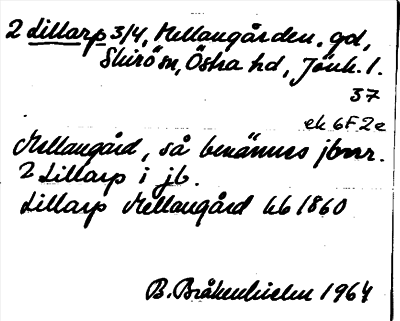 2 Lillarp 3/4, Mellangården, gd,
Skirö sn, Östra hd, Jönk. l.
37
ek 6F2e
Mellangård, så benämnes jbnr.
2 Lillarp i jb.
Lillarp Mellangård hb 1860
B. Bråkenhielm 1964